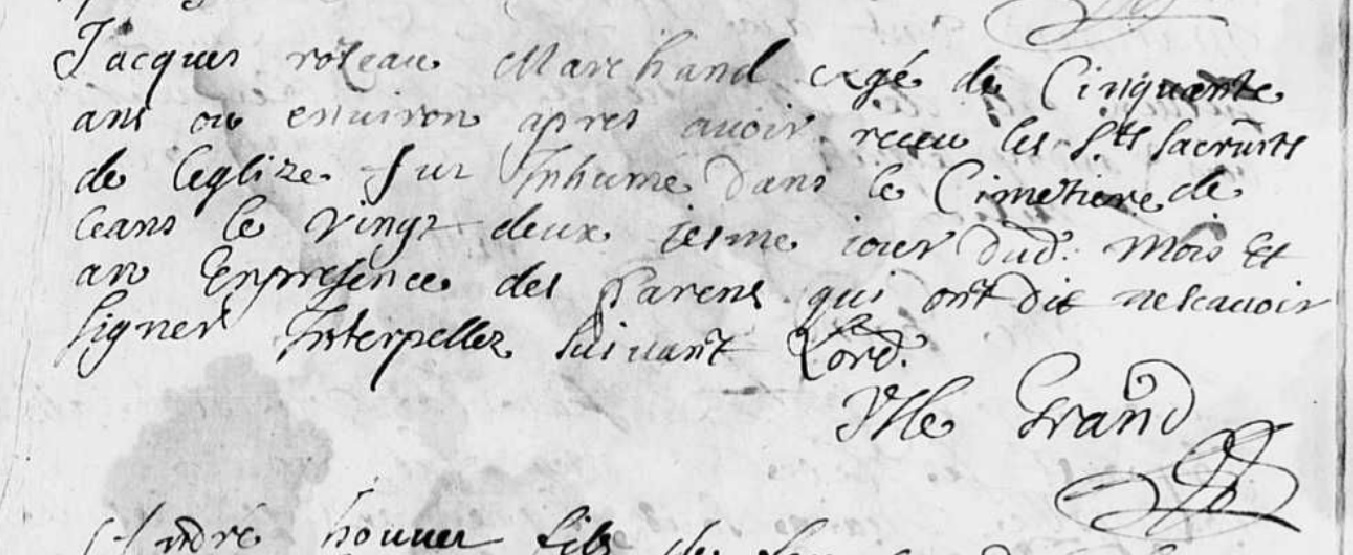 Jacques roteau Marchand agé de Cinquante
ans ou environ apres auoir receu les Sts Sacrmts
de leglize fur Inhumé dans le Cimetiere de
ceans le vingt deux iesme iour dud. Mois et
an Enpresence des Parens qui ont dit nescauoir
signer Interpellez suiuant Lord.
Grand
André fils de